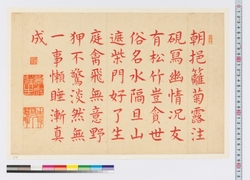 朝挹籬菊露注
硯寫幽情况友
有松竹豈貪世
俗名水隔且山
遮柴門好了生
庭禽飛無意野
狎不驚淡然無
一事懶睡漸真
成